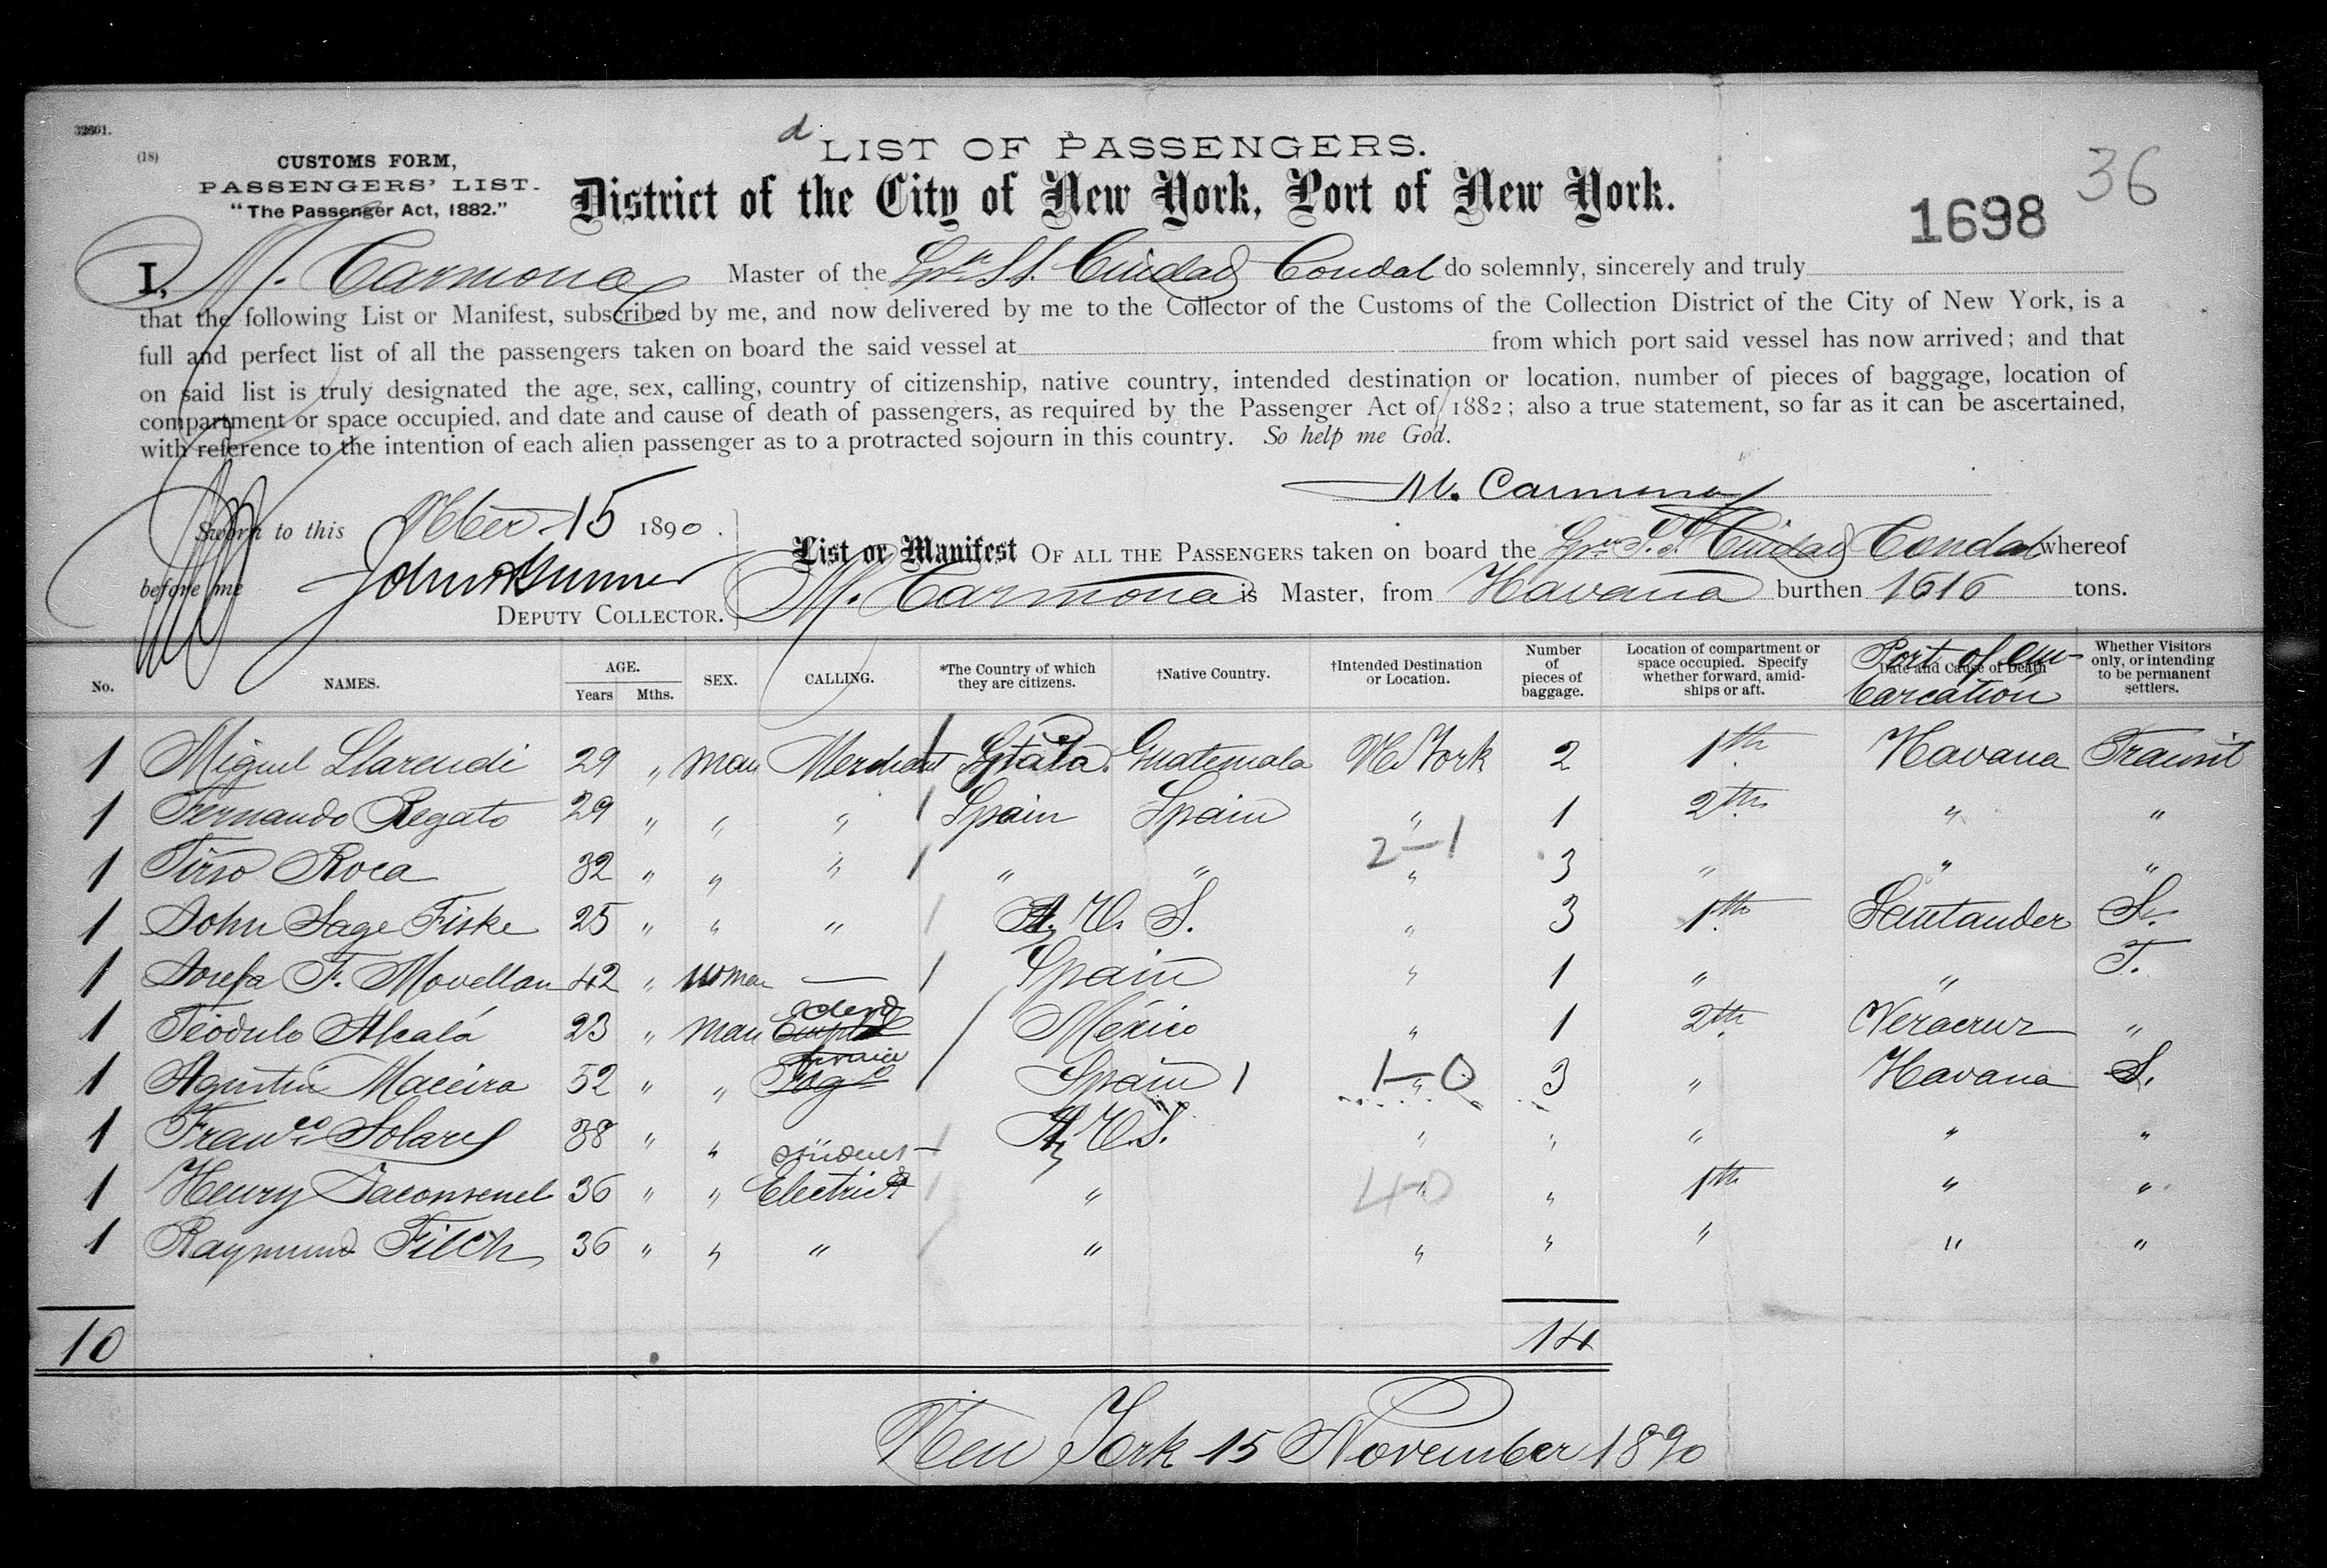 32601.
(18)
CUSTOMS FORM,
PASSENGERS' LIST.
"The Passenger Act, 1882."
d
LIST OF PASSENGERS.
District of the City of New York, Port of New York.
1698
36
I, M. Carmona Master of the Spn. SS. Ciudad Condal do solemnly, sincerely and truly
that the following List or Manifest, subscribed by me, and now delivered by me to the Collector of the Customs of the Collection District of the City of New York, is a
full and perfect list of all the passengers taken on board the said vessel at from which port said vessel has now arrived; and that
on said list is truly designated the age, sex, calling, country of citizenship, native country, intended destination or location, number of pieces of baggage, location of
compartment or space occupied, and date and cause of death of passengers, as required by the Passenger Act of 1882; also a true statement, so far as it can be ascertained,
with reference to the intention of each alien passenger as to a protracted sojourn in this country. So help me God.
M. Carmona
Sworn to this 15 1890.
before me
DEPUTY COLLECTOR.
List or Manifest OF ALL THE PASSENGERS taken on board the Spn. S.S. Ciudad Condal whereof
M. Carmona is Master, from Havana burthen 1616 tons.
No. NAMES. AGE. Years Mths. SEX. CALLING. *The Country of which they are citizens. †Native Country. †Intended Destination or Location. Number of pieces of baggage. Location of compartment or space occupied. Specify whether forward, amidships or aft. Date and Cause of Death Port of embarcation Whether Visitors only, or intending to be permanent settlers.
1 Miguel Llarendi 29 " man Merchant Guatemala N. York 2 1th Havana Transit
1 Fernando Regato 29 " " " 1 Spain Spain " 1 2th " "
2-1
1 Tirso Roca 32 " " " 1 " " " 3 " " "
1 John Sage Fiske 25 " " " 1 U. S. " 3 1th Santander S.
1 Josefa F. Movellan 42 " woman — 1 Spain " 1 " " T.
1 Teódulo Alcalá 23 " man Mexico " 1 2th Veracruz "
1 Agustin Maceira 52 " " Spain 1 1-0 " 3 " Havana S.
1 Franco Solares 38 " " U.S. " " " " "
1 Henry 36 " " Electrict " 40 " " 1th " "
1 Raymund Filch 36 " " " " " " " " "
10 14
New York 15 November 1890